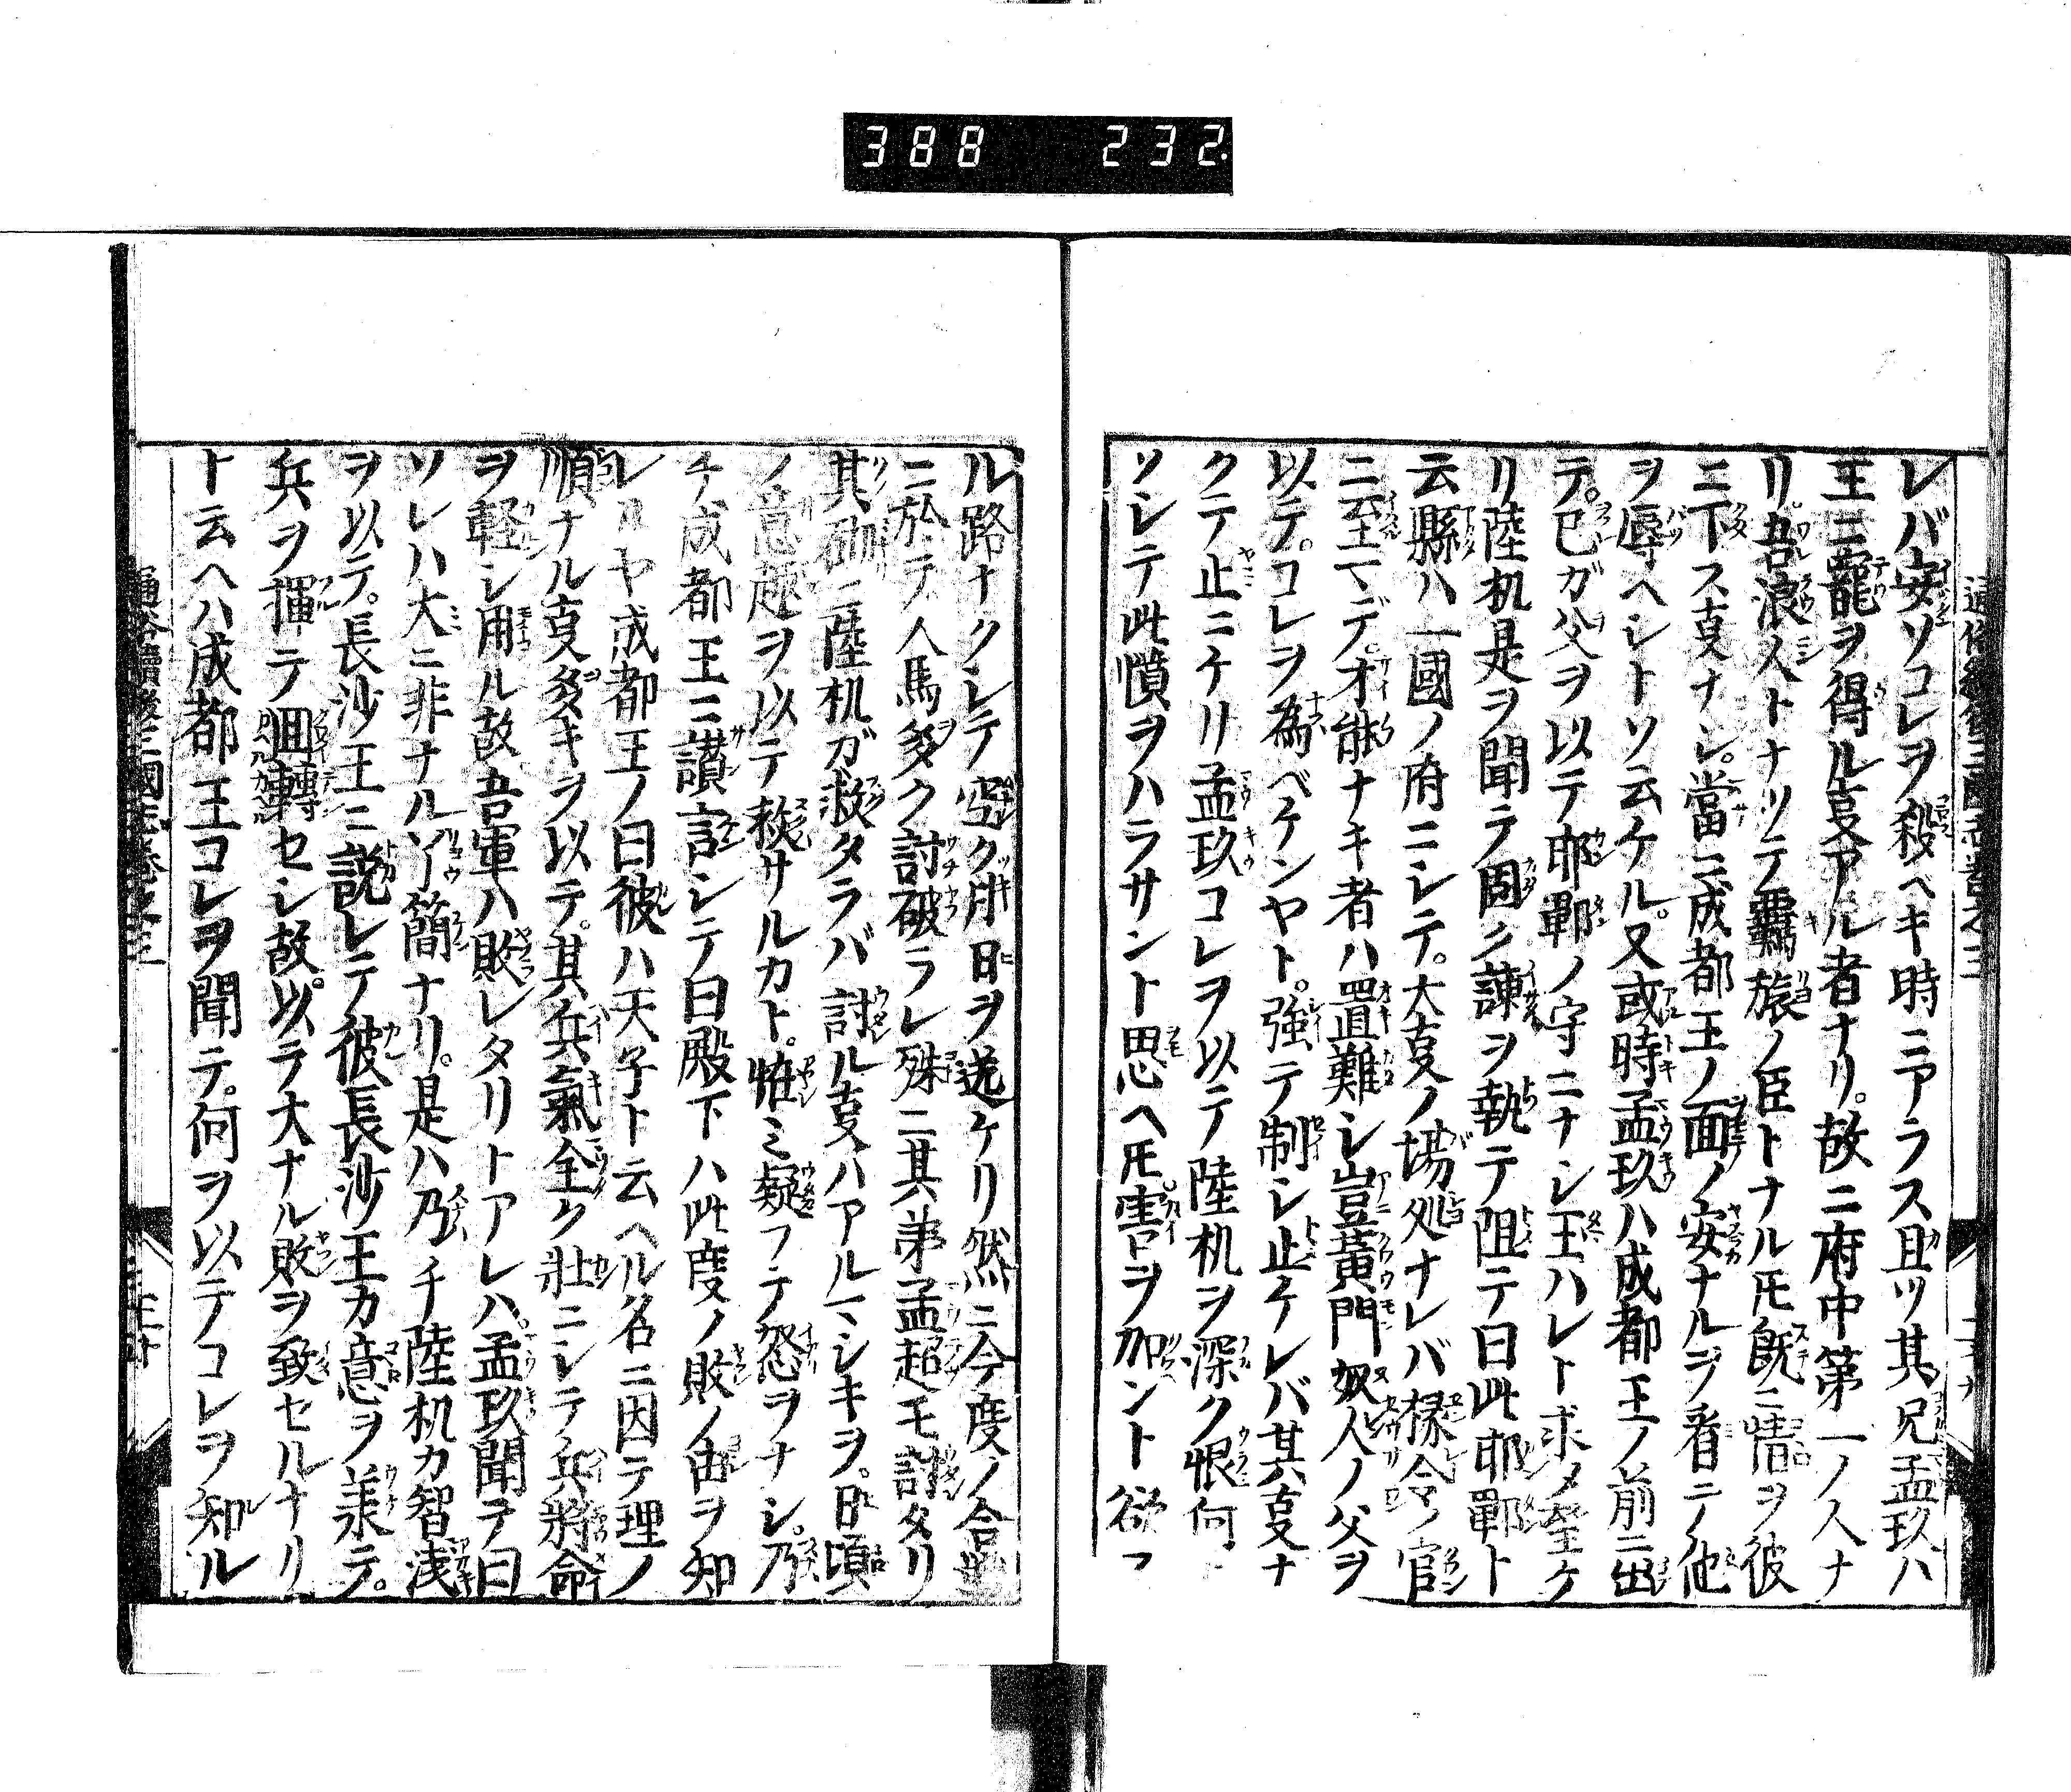 388 232
レバ安ソコレヲ殺ヘキ時ニアラス且ツ其兄孟玖ハ
王ニ寵ヲ得ル叓アル者ナリ。故ニ府中第一ノ人ナ
リ。吾浪人トナツテ羈旅ノ臣トナル𪜈既ニ情ヲ彼
ニ下ス叓ナシ。當ニ成都王ノ面ノ安ナルヲ看ニ他
ヲ辱ヘシトソ云ケル。又或時孟玖ハ成都王ノ前ニ出
テ。已ガ父ヲ以テ邯鄲ノ守ニナシ王ハレト求メ奎ケ
リ陸机是ヲ聞テ固ク諫ヲ執テ阻テ曰此邯鄲ト
云縣ハ一國ノ府ニシテ。大叓ノ場処ナレバ椽令ノ官
ニ至マデ。才能ナキ者ハ置難シ豈黄門奴人ノ父ヲ
以テ。コレヲ為ベケンヤト。強テ制シ止ケレバ其叓ナ
クテ止ニケリ孟玖コレヲ以テ陸机ヲ深ク恨何
ソシテ此憤ヲハラサント思ヘ𪜈。害ヲ加ント欲フ
ル路ナクシテ空ク月日ヲ送ケリ然ニ今度ノ合戦
ニ於テ人馬多ク討破ラレ殊ニ其弟孟超モ討タリ
其砌ニ陸机ガ救タラバ討ル叓ハアルマシキヲ。日頃
ノ意趣ヲ以テ救サルカト。恠ミ疑フテ怒ヲナシ。乃
チ成都王ニ讃言シテ曰殿下ハ此度ノ敗ノ由ヲ知
レルヤ成都王ノ曰彼ハ天子ト云ヘル名ニ因テ理ノ
順ナル叓多キヲ以テ。其兵氣全ク壮ニシテ兵將命
ヲ軽シ用ル故吾軍ハ敗レタリトアレハ。孟玖聞テ曰
ソレハ大ニ非ナル丫簡ナリ。是ハ乃チ陸机カ智浅
ヲ以テ。長沙王ニ説レテ彼長沙王カ意ヲ羕テ。
兵ヲ揮テ囬轉セシ故。以テ大ナル敗ヲ致セルナリ
ト云ヘハ成都王コレヲ聞テ。何ヲ以テコレヲ知ル
通俗續後三國志卷之三